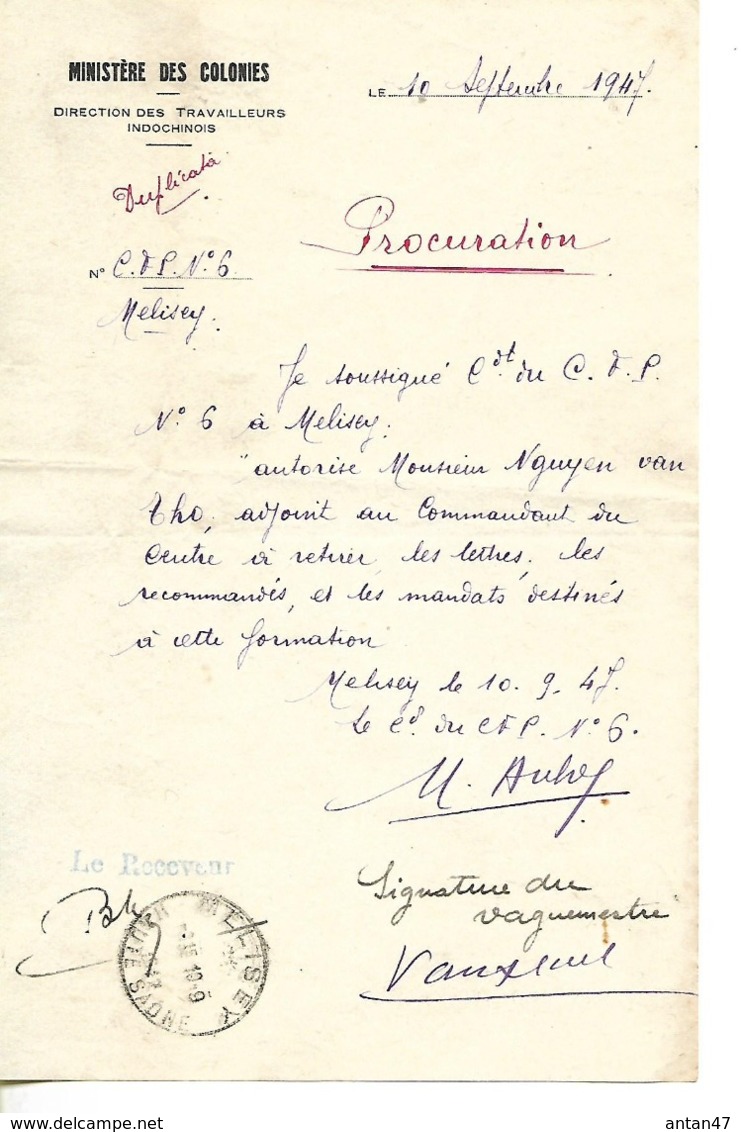 MINISTÈRE DES COLONIES
DIRECTION DES TRAVAILLEURS
INDOCHINOIS
LE 10 Septembre 1947.
Duplicata
Procuration
N° C.T.P. N° 6
Melisey.
Je soussigné Cdt du C.T.P.
N° 6 à Melisey.
autorise Monsieur Nguyen van
Tho, adjoint au Commandant du
Centre à retirer, les lettres, les
recommandés, et les mandats destinés
à cette formation
Melisey le 10. 9. 47.
Le Ct du CTP. N° 6.
Le Receveur
Signature du
vaguemestre
MELISEY
HAUTE SAONE
10-9
antan47